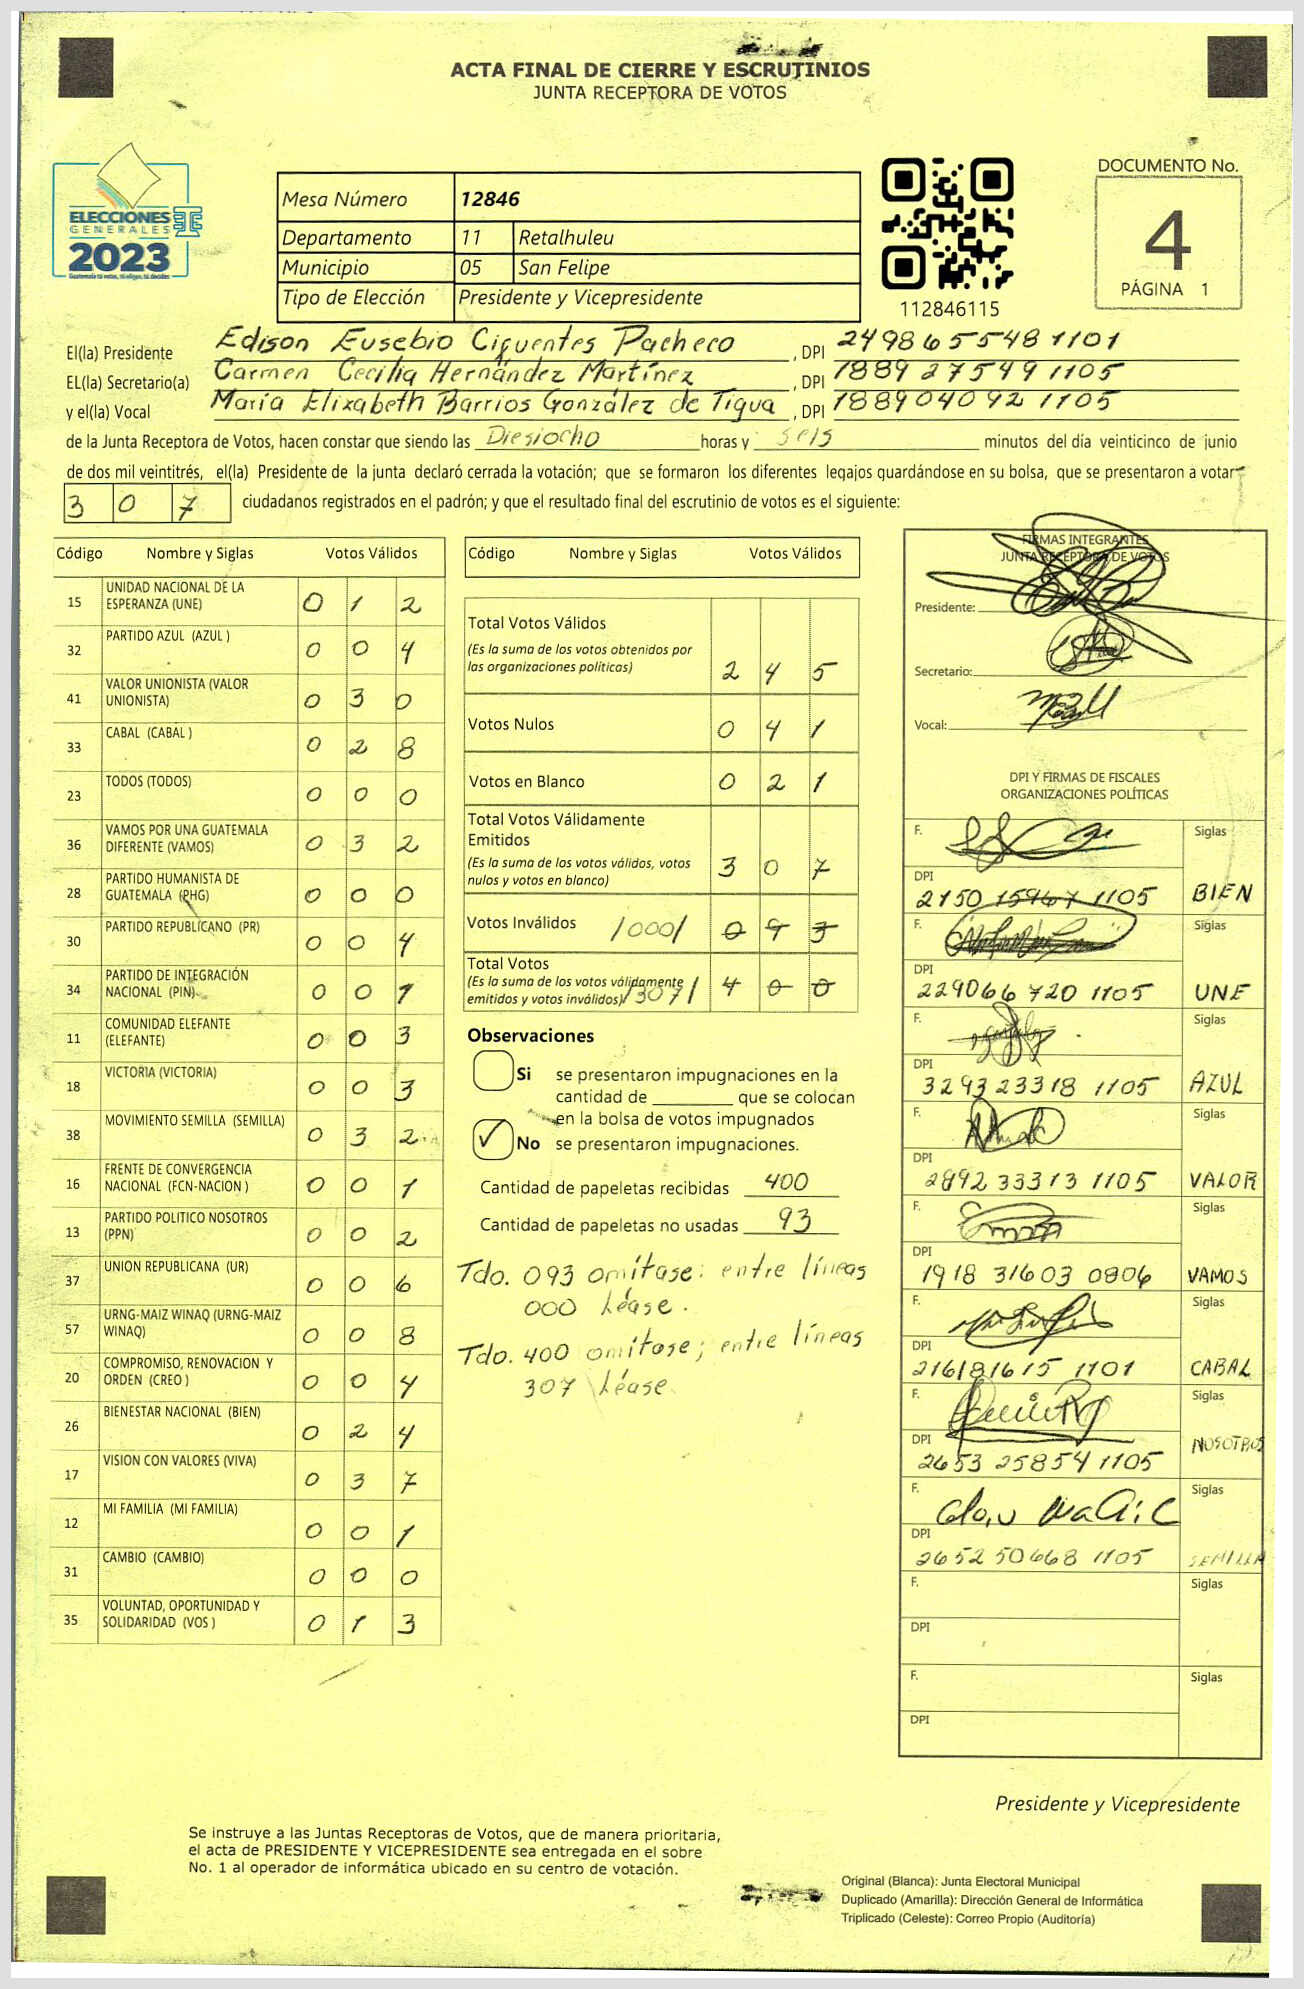 ACTA FINAL DE CIERRE Y ESCRUTINIOS
JUNTA RECEPTORA DE VOTOS
ELECCIONES
GENERALES
2023
Guatemala tú votas, tú eliges, tú decides
Mesa Número 12846
Departamento 11 Retalhuleu
Municipio 05 San Felipe
Tipo de Elección Presidente y Vicepresidente
112846115
DOCUMENTO No.
4
PÁGINA 1
El(la) Presidente Edison Eusebio Cifuentes Pacheco , DPI 2498655481101
EL(la) Secretario(a) Carmen Cecilia Hernández Martínez , DPI 1889 27549 1105
y el(la) Vocal María Elizabeth Barrios González de Tigua , DPI 188904092 1105
de la Junta Receptora de Votos, hacen constar que siendo las Diesiocho horas y seis minutos del día veinticinco de junio
de dos mil veintitrés, el(la) Presidente de la junta declaró cerrada la votación; que se formaron los diferentes legajos quardándose en su bolsa, que se presentaron a votar
3 0 7 ciudadanos registrados en el padrón; y que el resultado final del escrutinio de votos es el siguiente:
Código Nombre y Siglas Votos Válidos
15 UNIDAD NACIONAL DE LA ESPERANZA (UNE) 0 1 2
32 PARTIDO AZUL (AZUL ) 0 0 4
41 VALOR UNIONISTA (VALOR UNIONISTA) 0 3 0
33 CABAL (CABAL ) 0 2 8
23 TODOS (TODOS) 0 0 0
36 VAMOS POR UNA GUATEMALA DIFERENTE (VAMOS) 0 3 2
28 PARTIDO HUMANISTA DE GUATEMALA (PHG) 0 0 0
30 PARTIDO REPUBLICANO (PR) 0 0 4
34 PARTIDO DE INTEGRACIÓN NACIONAL (PIN) 0 0 1
11 COMUNIDAD ELEFANTE (ELEFANTE) 0 0 3
18 VICTORIA (VICTORIA) 0 0 3
38 MOVIMIENTO SEMILLA (SEMILLA) 0 3 2
16 FRENTE DE CONVERGENCIA NACIONAL (FCN-NACION ) 0 0 1
13 PARTIDO POLITICO NOSOTROS (PPN) 0 0 2
37 UNION REPUBLICANA (UR) 0 0 6
57 URNG-MAIZ WINAQ (URNG-MAIZ WINAQ) 0 0 8
20 COMPROMISO, RENOVACION Y ORDEN (CREO ) 0 0 4
26 BIENESTAR NACIONAL (BIEN) 0 2 4
17 VISION CON VALORES (VIVA) 0 3 7
12 MI FAMILIA (MI FAMILIA) 0 0 1
31 CAMBIO (CAMBIO) 0 0 0
35 VOLUNTAD, OPORTUNIDAD Y SOLIDARIDAD (VOS ) 0 1 3
Código Nombre y Siglas Votos Válidos
Total Votos Válidos
(Es la suma de los votos obtenidos por
las organizaciones políticas) 2 4 5
Votos Nulos 0 4 1
Votos en Blanco 0 2 1
Total Votos Válidamente
Emitidos
(Es la suma de los votos válidos, votos
nulos y votos en blanco) 3 0 7
Votos Inválidos /000/ 0 9 3
Total Votos
(Es la suma de los votos válidamente
emitidos y votos inválidos) /307/ 4 0 0
Observaciones
Si se presentaron impugnaciones en la
cantidad de ________ que se colocan
en la bolsa de votos impugnados
No se presentaron impugnaciones.
Cantidad de papeletas recibidas 400
Cantidad de papeletas no usadas 93
Tdo. 093 omítase: entre líneas
000 Léase.
Tdo. 400 omítase; entre líneas
307 Léase.
FIRMAS INTEGRANTES
JUNTA RECEPTORA DE VOTOS
Presidente:
Secretario:
Vocal:
DPI Y FIRMAS DE FISCALES
ORGANIZACIONES POLÍTICAS
F. Siglas
DPI
2150 15967 1105 BIEN
F. Siglas
DPI
229066 720 1105 UNE
F. Siglas
DPI
3293 23318 1105 AZUL
F. Siglas
DPI
2892 33313 1105 VALOR
F. Siglas
DPI
1918 31603 0806 VAMOS
F. Siglas
DPI
216181615 1101 CABAL
F. Siglas
DPI
2653 25854 1105 NOSOTROS
F. Siglas
DPI
2652 50668 1105 SEMILLA
F. Siglas
DPI
F. Siglas
DPI
Presidente y Vicepresidente
Se instruye a las Juntas Receptoras de Votos, que de manera prioritaria,
el acta de PRESIDENTE Y VICEPRESIDENTE sea entregada en el sobre
No. 1 al operador de informática ubicado en su centro de votación.
Original (Blanca): Junta Electoral Municipal
Duplicado (Amarilla): Dirección General de Informática
Triplicado (Celeste): Correo Propio (Auditoría)